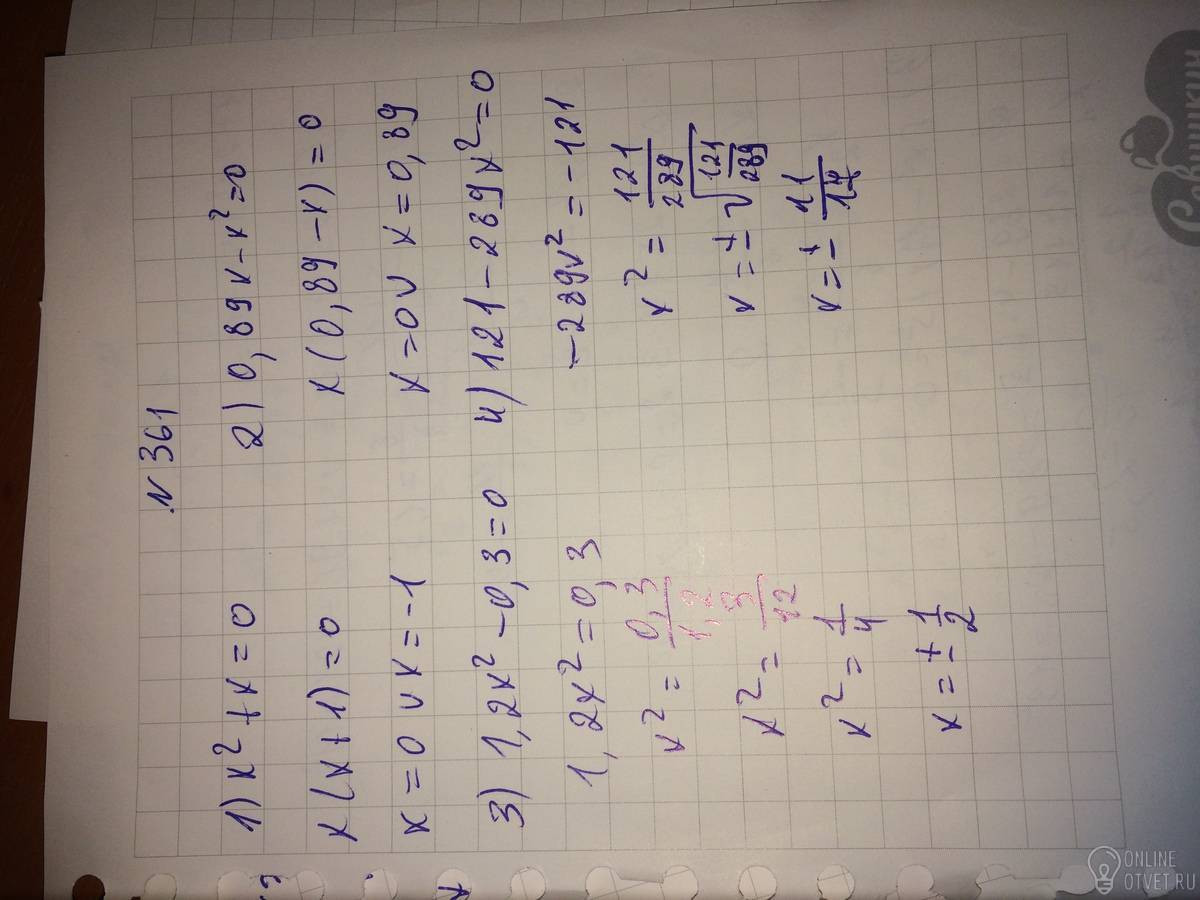 N 361
1) x² + x = 0
x(x+1) = 0
x = 0 v x = -1
2) 0,89x - x² = 0
x(0,89 - x) = 0
x = 0 v x = 0,89
3) 1,2x² - 0,3 = 0
1,2x² = 0,3
x² = 0,3/1,2
x² = 3/12
x² = 1/4
x = ± 1/2
4) 121 - 289x² = 0
-289x² = -121
x² = 121/289
x = ± √121/289
x = ± 11/17
ONLINE
OTVET.RU